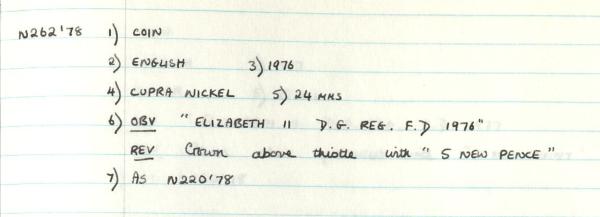 N262'78 1) COIN
2) ENGLISH 3) 1976
4) CUPRA NICKEL 5) 24 MMS
6) OBV "ELIZABETH II D.G. REG. F.D 1976"
REV Crown above thistle with "5 NEW PENCE"
7) AS N220'78